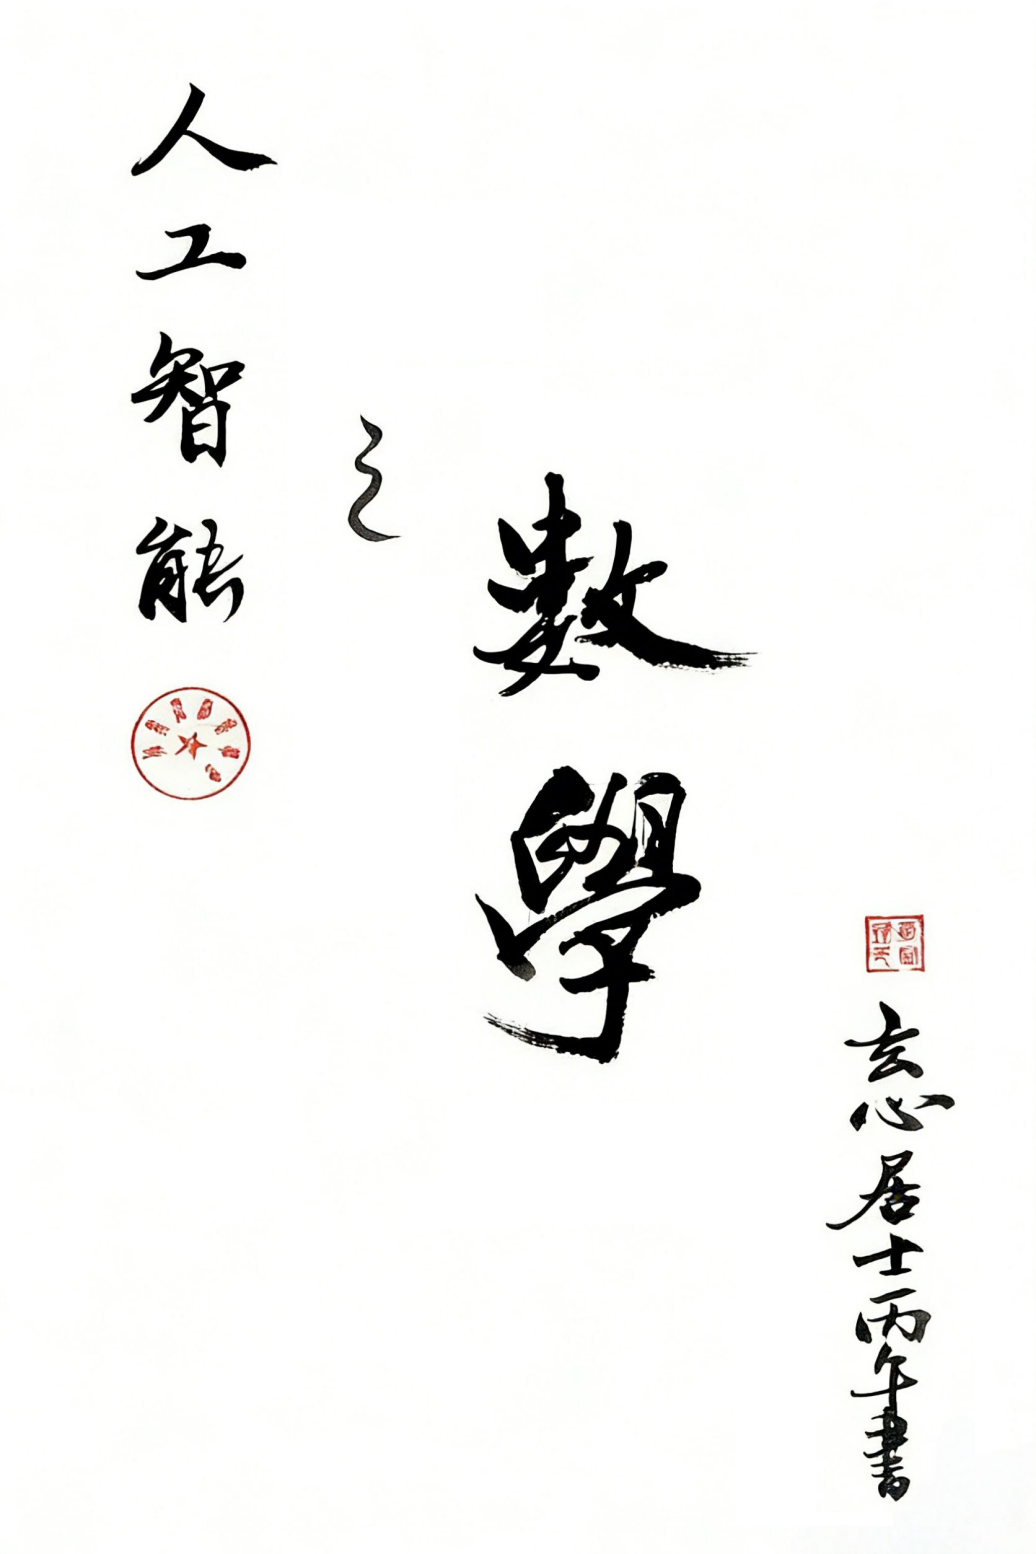 人工智能
之
數學
玄心居士丙午書